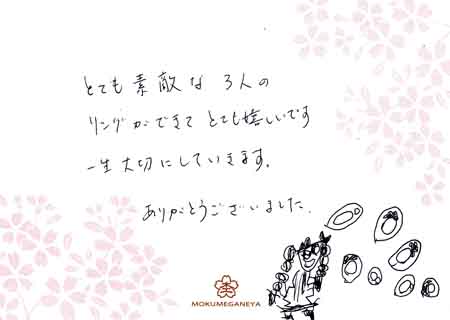 とても素敵な3人の
リングができてとても嬉しいです
一生大切にしていきます。
ありがとうございました。
杢
MOKUMEGANEYA